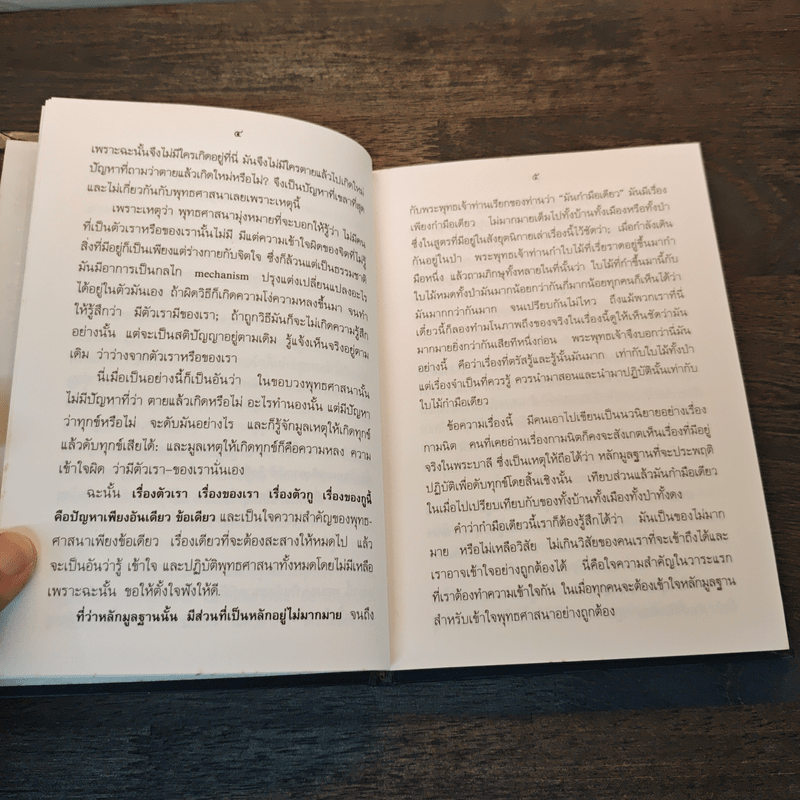 ๔
เพราะฉะนั้นจึงไม่มีใครเกิดอยู่ที่นี่ มันจึงไม่มีใครตายแล้วไปเกิดใหม่
ปัญหาที่ถามว่าตายแล้วเกิดใหม่หรือไม่? จึงเป็นปัญหาที่เขลาที่สุด
และไม่เกี่ยวกันกับพุทธศาสนาเลยเพราะเหตุนี้
เพราะเหตุว่า พุทธศาสนามุ่งหมายที่จะบอกให้รู้ว่า ไม่มีคน
ที่เป็นตัวเราหรือของเรานั้นไม่มี มีแต่ความเข้าใจผิดของจิตที่ไม่รู้
สิ่งที่มีอยู่ก็เป็นเพียงแต่ร่างกายกับจิตใจ ซึ่งก็ล้วนแต่เป็นธรรมชาติ
มันมีอาการเป็นกลไก mechanism ปรุงแต่งเปลี่ยนแปลงอะไร
ได้อยู่ในตัวมันเอง ถ้าผิดวิธีก็เกิดความโง่ความหลงขึ้นมา จนทำ
ให้รู้สึกว่า มีตัวเรามีของเรา; ถ้าถูกวิธีมันก็จะไม่เกิดความรู้สึก
อย่างนั้น แต่จะเป็นสติปัญญาอยู่ตามเดิม รู้แจ้งเห็นจริงอยู่ตาม
เดิม ว่าว่างจากตัวเราหรือของเรา
นี่เมื่อเป็นอย่างนี้ก็เป็นอันว่า ในขอบวงพุทธศาสนานั้น
ไม่มีปัญหาที่ว่า ตายแล้วเกิดหรือไม่ อะไรทำนองนั้น แต่มีปัญหา
ว่าทุกข์หรือไม่ จะดับมันอย่างไร และก็รู้จักมูลเหตุให้เกิดทุกข์
แล้วดับทุกข์เสียได้: และมูลเหตุให้เกิดทุกข์ก็คือความหลง ความ
เข้าใจผิด ว่ามีตัวเรา-ของเรานั่นเอง
ฉะนั้น เรื่องตัวเรา เรื่องของเรา เรื่องตัวกู เรื่องของกูนี้
คือปัญหาเพียงอันเดียว ข้อเดียว และเป็นใจความสำคัญของพุทธ-
ศาสนาเพียงข้อเดียว เรื่องเดียวที่จะต้องสะสางให้หมดไป แล้ว
จะเป็นอันว่ารู้ เข้าใจ และปฏิบัติพุทธศาสนาทั้งหมดโดยไม่มีเหลือ
เพราะฉะนั้น ขอให้ตั้งใจฟังให้ดี.
ที่ว่าหลักมูลฐานนั้น มีส่วนที่เป็นหลักอยู่ไม่มากมาย จนถึง
๕
กับพระพุทธเจ้าท่านเรียกของท่านว่า “มันกำมือเดียว” มันมีเรื่อง
เพียงกำมือเดียว ไม่มากมายเต็มไปทั้งบ้านทั้งเมืองหรือทั้งป่า
ซึ่งในสูตรที่มีอยู่ในสังยุตนิกายเล่าเรื่องนี้ไว้ชัดว่า; เมื่อกำลังเดิน
กันอยู่ในป่า พระพุทธเจ้าท่านกำใบไม้ที่เรี่ยราดอยู่ขึ้นมากำ
มือหนึ่ง แล้วถามภิกษุทั้งหลายในที่นั้นว่า ใบไม้ที่กำขึ้นมานี้กับ
ใบไม้หมดทั้งป่ามันมากน้อยกว่ากันกี่มากน้อยทุกคนก็เห็นได้ว่า
มันมากกว่ากันมาก จนเปรียบกันไม่ไหว ถึงแม้พวกเราที่นี่
เดี๋ยวนี้ก็ลองทำมโนภาพถึงของจริงในเรื่องนี้ดูให้เห็นชัดว่ามัน
มากมายยิ่งกว่ากันเสียทีหนึ่งก่อน พระพุทธเจ้าจึงบอกว่านี่มัน
อย่างนี้ คือว่าเรื่องที่ตรัสรู้และรู้นั้นมันมาก เท่ากับใบไม้ทั้งป่า
แต่เรื่องจำเป็นที่ควรรู้ ควรนำมาสอนและนำมาปฏิบัตินั้นเท่ากับ
ใบไม้กำมือเดียว
ข้อความเรื่องนี้ มีคนเอาไปเขียนเป็นนวนิยายอย่างเรื่อง
กามนิต คนที่เคยอ่านเรื่องกามนิตก็คงจะสังเกตเห็นเรื่องที่มีอยู่
จริงในพระบาลี ซึ่งเป็นเหตุให้ถือได้ว่า หลักมูลฐานที่จะประพฤติ
ปฏิบัติเพื่อดับทุกข์โดยสิ้นเชิงนั้น เทียบส่วนแล้วมันกำมือเดียว
ในเมื่อไปเปรียบเทียบกับของทั้งบ้านทั้งเมืองทั้งป่าทั้งดง
คำว่ากำมือเดียวนี้เราก็ต้องรู้สึกได้ว่า มันเป็นของไม่มาก
มาย หรือไม่เหลือวิสัย ไม่เกินวิสัยของคนเราที่จะเข้าถึงได้และ
เราอาจเข้าใจอย่างถูกต้องได้ นี่คือใจความสำคัญในวาระแรก
ที่เราต้องทำความเข้าใจกัน ในเมื่อทุกคนจะต้องเข้าใจหลักมูลฐาน
สำหรับเข้าใจพุทธศาสนาอย่างถูกต้อง